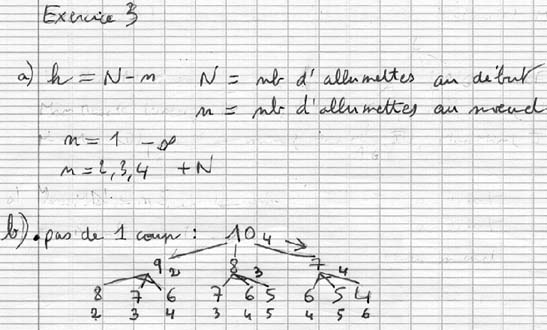 Exercice 3
a) h = N - n N = nb d'allumettes au début
n = nb d'allumettes au noeud
n = 1 -∞
n = 2,3,4 +N
b) . pas de 1 coup : 10 4
9 2 8 3 7 4
8 7 6 7 6 5 6 5 4
2 3 4 3 4 5 4 5 6